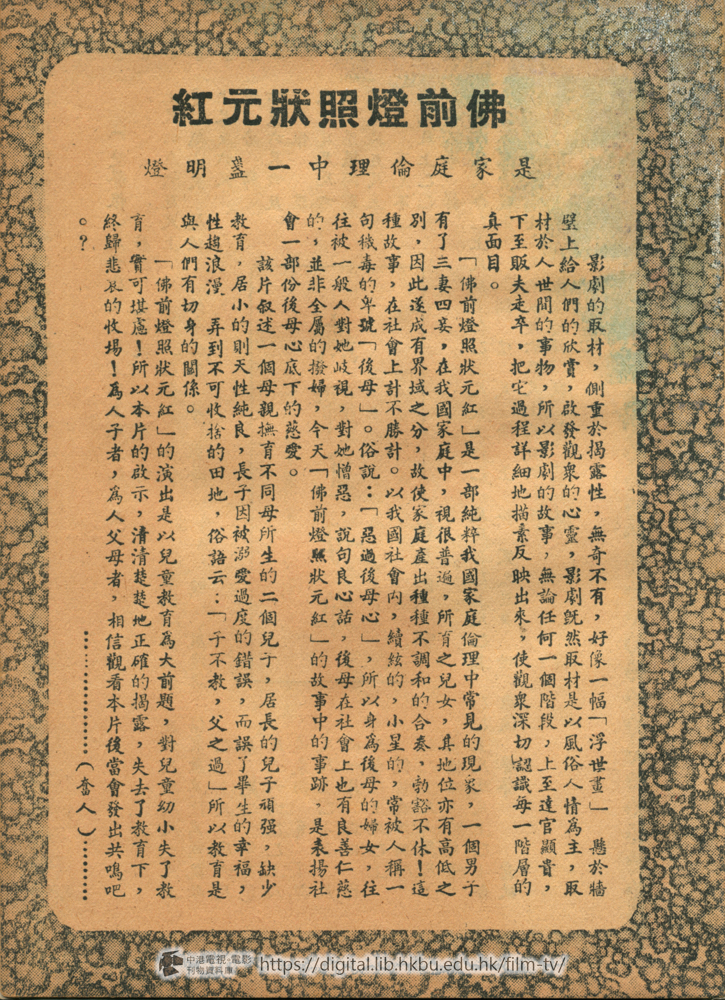 佛前燈照狀元紅
是家庭倫理中一盞明燈
影劇的取材，側重於揭露性，無奇不有，好像一幅「浮世畫」懸於牆
壁上給人們的欣賞，啟發觀衆的心靈，影劇既然取材是以風俗人情為主，取
材於人世間的事物，所以影劇的故事，無論任何一個階段，上至達官顯貴，
下至販夫走卒，把它過程詳細地描素反映出來，使觀衆深切認識每一階層的
真面目。
「佛前燈照狀元紅」是一部純粹我國家庭倫理中常見的現家，一個男子
有了三妻四妾，在我國家庭中，視很普遍，所育之兒女，其地位亦有高低之
別，因此遂成有界域之分，故使家庭產出種種不調和的合奏，勃谿不休！這
種故事，在社會上計不勝計。以我國社會內，續絃的，小星的，常被人稱一
句穢毒的卑號「後母」。俗說：「惡過後母心」，所以身為後母的婦女，往
往被一般人對她岐視，對她憎惡，說句良心話，後母在社會上也有良善仁慈
的，並非全屬的撥婦，今天「佛前燈照狀元紅」的故事中的事跡，是表揚社
會一部份後母心底下的慈愛。
該片叙述一個母親撫育不同母所生的二個兒子，居長的兒子頑强，缺少
教育，居小的則天性純良，長子因被溺愛過度的錯誤，而誤了畢生的幸福，
性趨浪漫，弄到不可收捨的田地，俗語云：「子不教，父之過」所以教育是
與人們有切身的關係。
「佛前燈照狀元紅」的演出是以兒童教育為大前題，對兒童幼小失了教
育，實可堪慮！所以本片的啟示，清清楚楚地正確的揭露，失去了教育下，
終歸悲哀的收場！為人子者，為人父母者，相信觀看本片後當會發出共鳴吧
。？
………………（奮人）………
中港電視·電影
刊物資料庫
https://digital.lib.hkbu.edu.hk/film-tv/